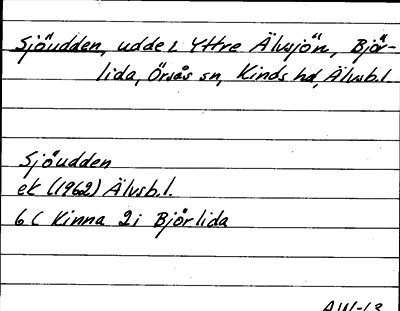 Sjöudden, udde i Yttre Älvsjön, Björ-
lida, Örsås sn, Kinds hd, Älvsb.l
Sjöudden
ek (1962) Älvsb.l.
6C Kinna 2i Björlida